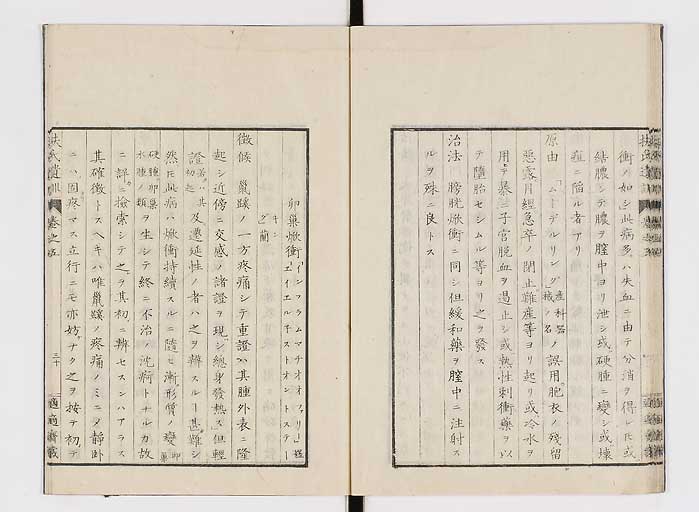 扶氏遺訓 巻之五
衝ノ如シ此病多クハ失血ニ由テ分消ヲ得レヒ或
結膿シテ膿ヲ腟中ヨリ泄シ或硬腫ニ變シ或壊
疽ニ陥ル者アリ
原由 ムーデルリング 産科器械ノ名 ノ誤用胞衣ノ殘留
惡露月經急卒ノ閉止難産等ヨリ起リ或冷水ヲ
用テ暴ニ子宮脱血ヲ遏止シ或熱性刺衝藥ヲ以
テ墮胎セシムル等ヨリ之ヲ發ス
治法 膀胱焮衝ニ同シ但緩和藥ヲ腟中ニ注射ス
ルヲ殊ニ良トス
卵巣焮衝
徴候 鼠蹊ノ一方疼痛シテ重證ハ其腫外表ニ隆
起シ近傍ニ交感ノ諸證ヲ現シ總身發熱ス但輕
證 及遷延性ノ者ハ之ヲ辨スルー甚難シ
然ヒ此病ハ焮衝持續スルニ隨ヒ漸ク形質ノ變
硬腫卵巣水腫ノ類 ヲ生シテ終ニ不治ノ沈痾トナルカ故
ニ詳ニ檢索シテ之ヲ其初ニ辨セスンハアラス
其確徴トスヘキハ唯鼠蹊ノ疼痛ノミニメ靜臥
ニハ固ヨリ 立行ニモ亦妨ナク之ヲ按テ初テ
扶氏遺訓 巻之五 三十 適適齋藏